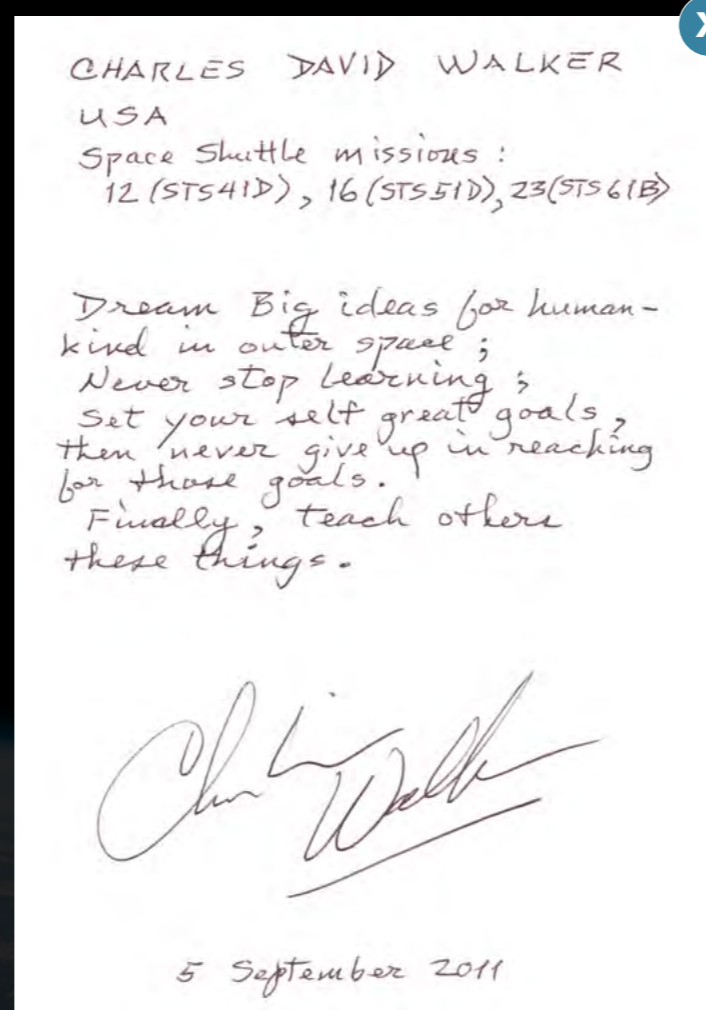 CHARLES DAVID WALKER
USA
Space Shuttle missions :
12 (STS41D), 16 (STS51D), 23(STS61B)
Dream Big ideas for human-
kind in outer space ;
Never stop learning ;
Set your self great goals,
then never give up in reaching
for those goals.
Finally, teach others
these things.
Charlie Walker
5 September 2011
X